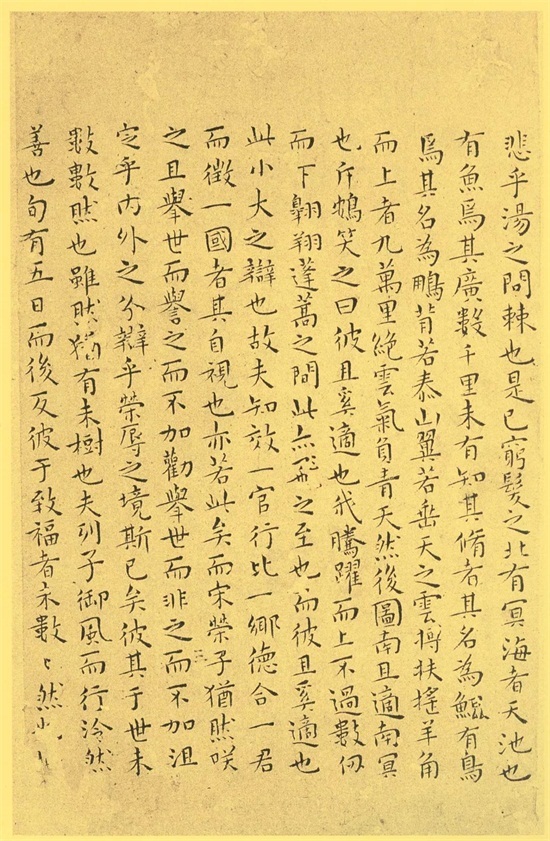 悲乎湯之問棘也是已窮髮之北有冥海者天池也
有魚焉其廣數千里未有知其脩者其名為鯤有鳥
焉其名為鵬背若泰山翼若垂天之雲摶扶搖羊角
而上者九萬里絕雲氣負青天然後圖南且適南冥
也斥鴳笑之曰彼且奚適也我騰躍而上不過數仞
而下翱翔蓬蒿之間此亦飛之至也而彼且奚適也
此小大之辯也故夫知效一官行比一鄉德合一君
而徵一國者其自視也亦若此矣而宋榮子猶然笑
之且舉世而譽之而不加勸舉世而非之而不加沮
定乎內外之分辯乎榮辱之境斯已矣彼其于世未
數數然也雖然猶有未樹也夫列子御風而行泠然
善也旬有五日而後反彼于致福者未數〻然也